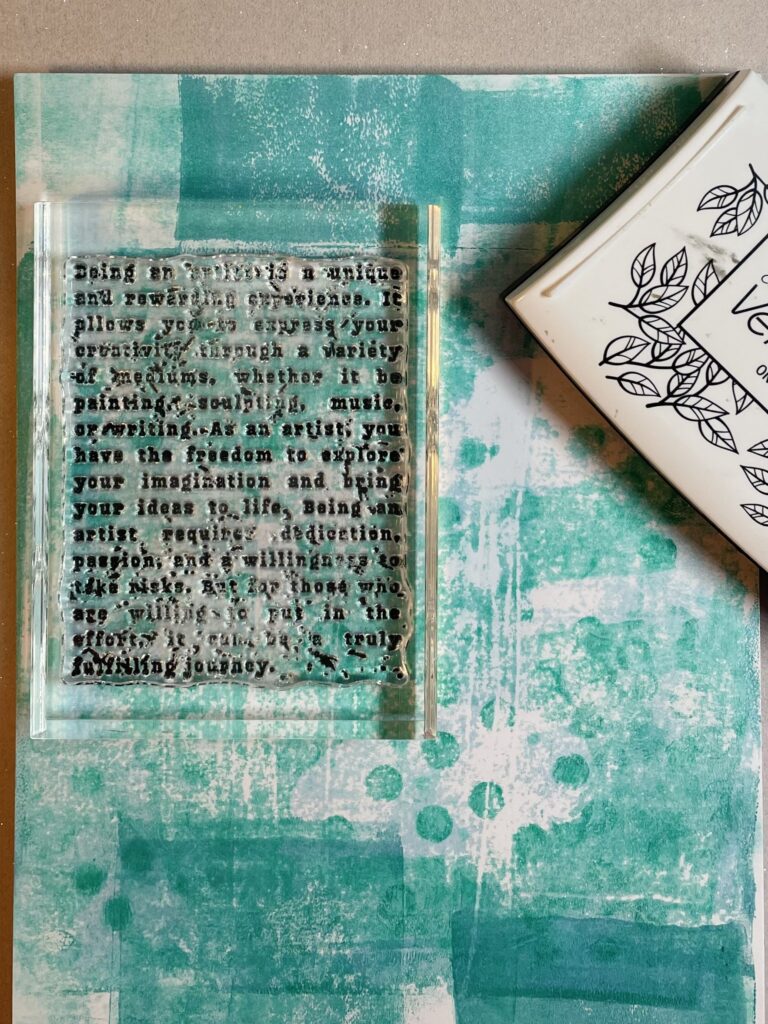 Being an artist is a unique
and rewarding experience. It
allows you to express your
creativity through a variety
of mediums, whether it be
painting, sculpting, music,
or writing. As an artist, you
have the freedom to explore
your imagination and bring
your ideas to life. Being an
artist requires dedication,
passion, and a willingness to
take risks. But for those who
are willing to put in the
effort, it can be a truly
fulfilling journey.